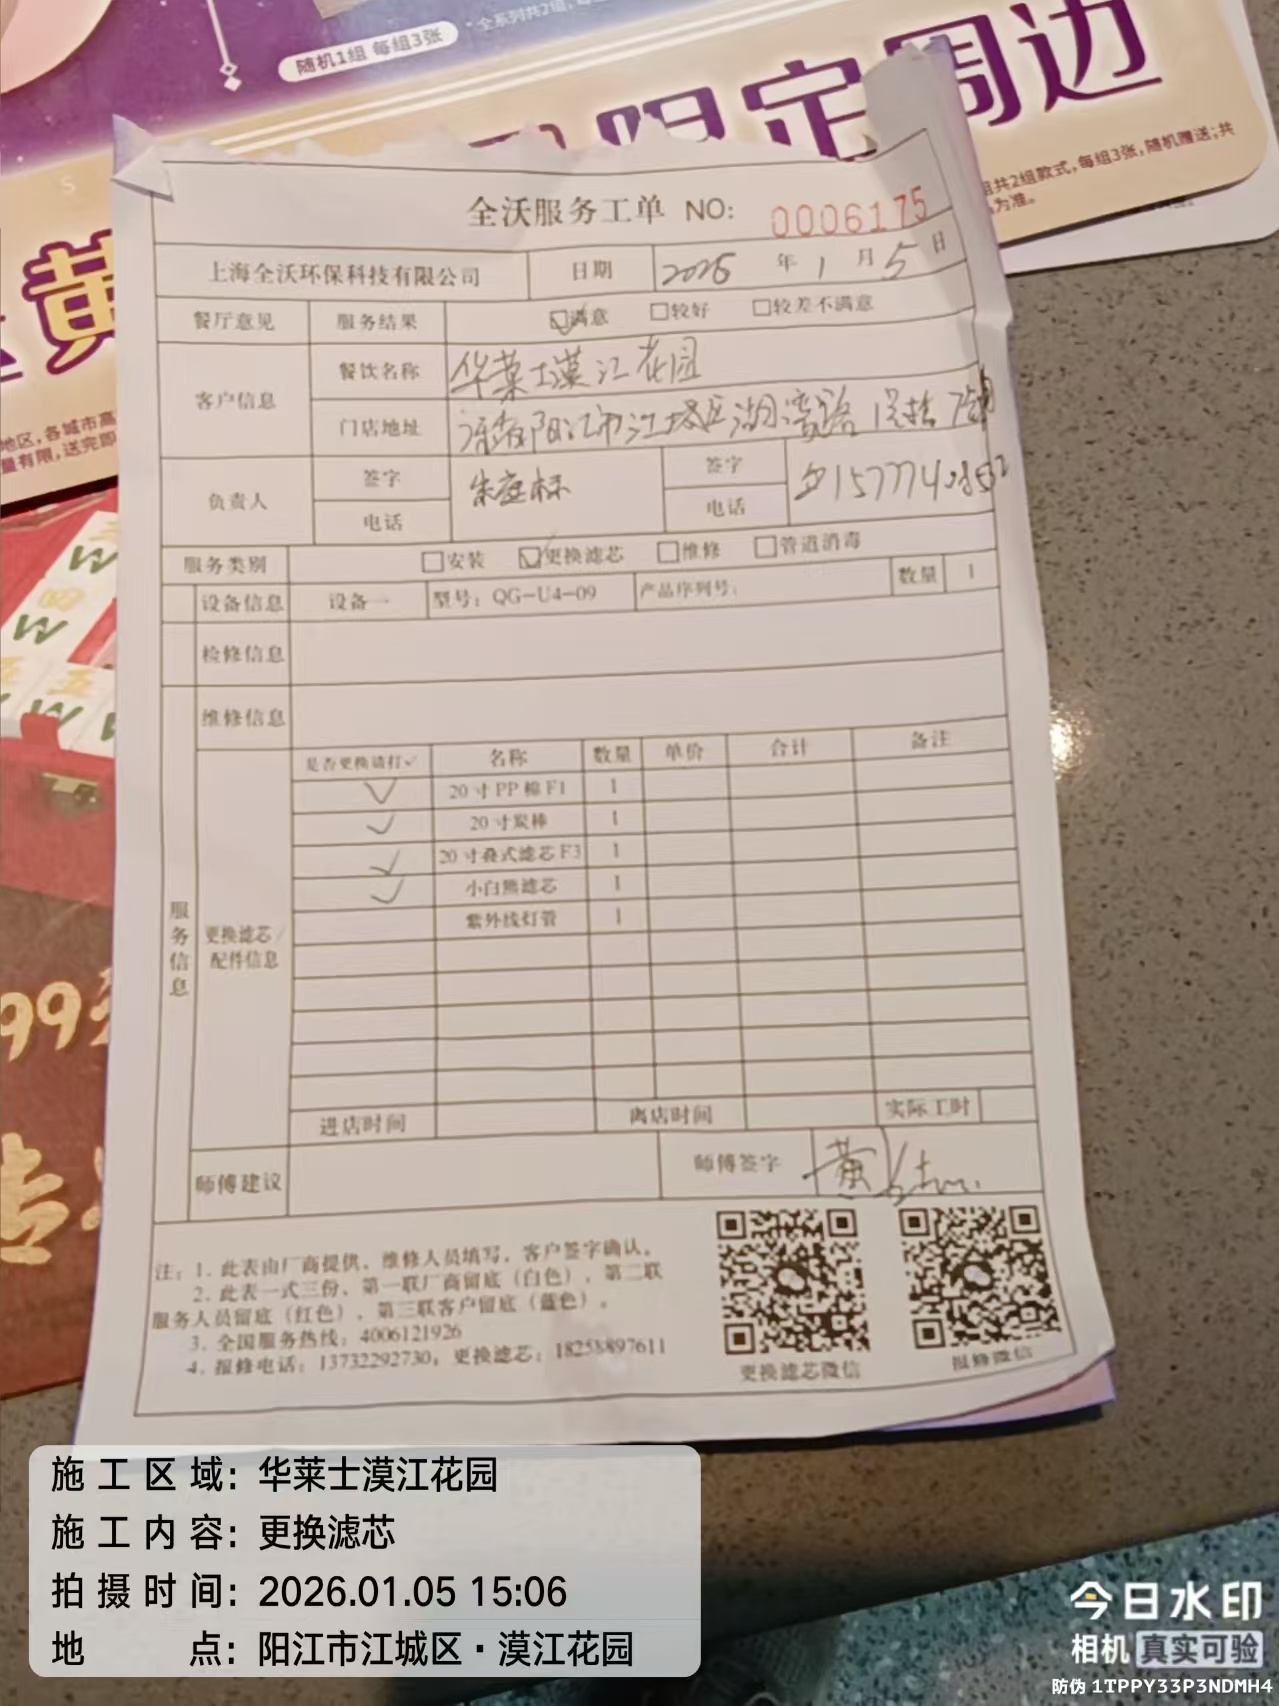 随机1组 每组3张
*全系列共2组,每
限定周边
组共2组款式,每组3张,随机赠送;共
为准。
黄
地区,各城市高
量有限,送完即
全沃服务工单 NO: 0006175
上海全沃环保科技有限公司 日期 2026 年 1 月 5 日
餐厅意见 服务结果 ☑满意 □较好 □较差不满意
客户信息 餐饮名称 华莱士漠江花园
门店地址 广东省阳江市江城区湖湾路
负责人 签字 朱庭标 签字
电话 电话
服务类别 □安装 ☑更换滤芯 □维修 □管道消毒
设备信息 设备一 型号:QG-U4-09 产品序列号: 数量 1
检修信息
维修信息
服务信息
更换滤芯/配件信息
是否更换请打✓ 名称 数量 单价 合计 备注
✓ 20寸PP棉F1 1
✓ 20寸炭棒 1
✓ 20寸叠式滤芯F3 1
✓ 小白熊滤芯 1
紫外线灯管 1
进店时间 离店时间 实际工时
师傅建议 师傅签字 黄
注:1. 此表由厂商提供,维修人员填写,客户签字确认。
2. 此表一式三份,第一联厂商留底(白色),第二联
服务人员留底(红色),第三联客户留底(蓝色)。
3. 全国服务热线:4006121926
4. 报修电话:13732292730,更换滤芯:18258897611
更换滤芯微信 报修微信
99
施工区域:华莱士漠江花园
施工内容:更换滤芯
拍摄时间:2026.01.05 15:06
地 点:阳江市江城区·漠江花园
今日水印
相机 真实可验
防伪 1TPPY33P3NDMH4